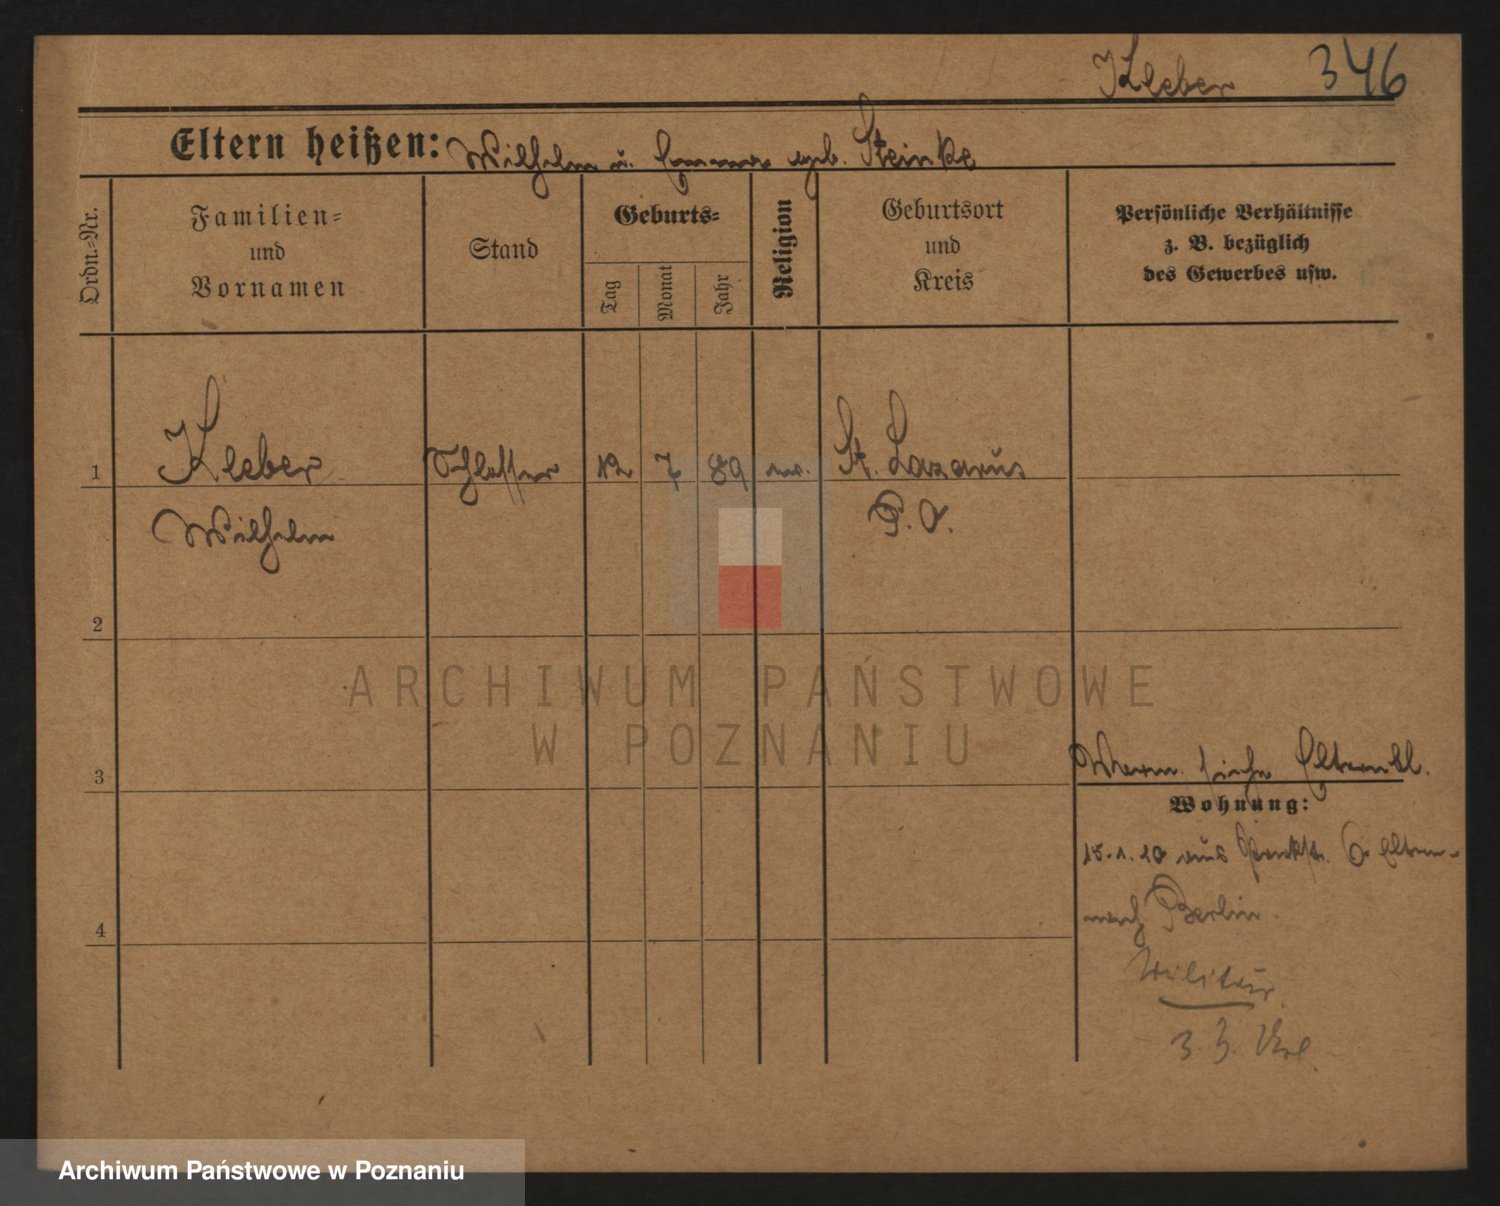 Kleber 346
Eltern heißen: Wilhelm u. Emma geb. Steinke
Ordn.=Nr.
Familien=
und
Vornamen
Stand
Geburts=
Tag
Monat
Jahr
Religion
Geburtsort
und
Kreis
Persönliche Verhältnisse
z. B. bezüglich
des Gewerbes usw.
1 Kleber Schlosser 12 7 89 ev. St. Lazarus
Wilhelm P. O.
2
ARCHIWUM PAŃSTWOWE
W POZNANIU
3 siehe Elternbl.
Wohnung:
15.1.10 aus Parkstr. 6 Eltern
nach Berlin.
4
Militär
Archiwum Państwowe w Poznaniu